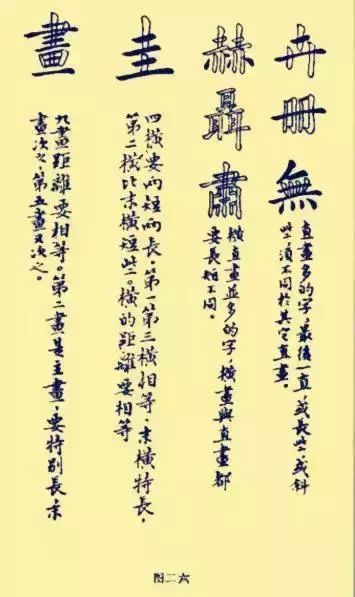 卉冊無
直畫多的字,最後一直,或長些或斜
些,須不同於其它直畫。
赫聶肅
橫直畫並多的字,橫畫與直畫都
要長短不同。
圭
四橫要两短两長。第一第三橫相等,末橫特長,
第二橫比末橫短些。橫的距離要相等
畫
九畫距離要相等。第二畫是主畫,要特别長,末
畫次之,第五畫又次之。
图二六